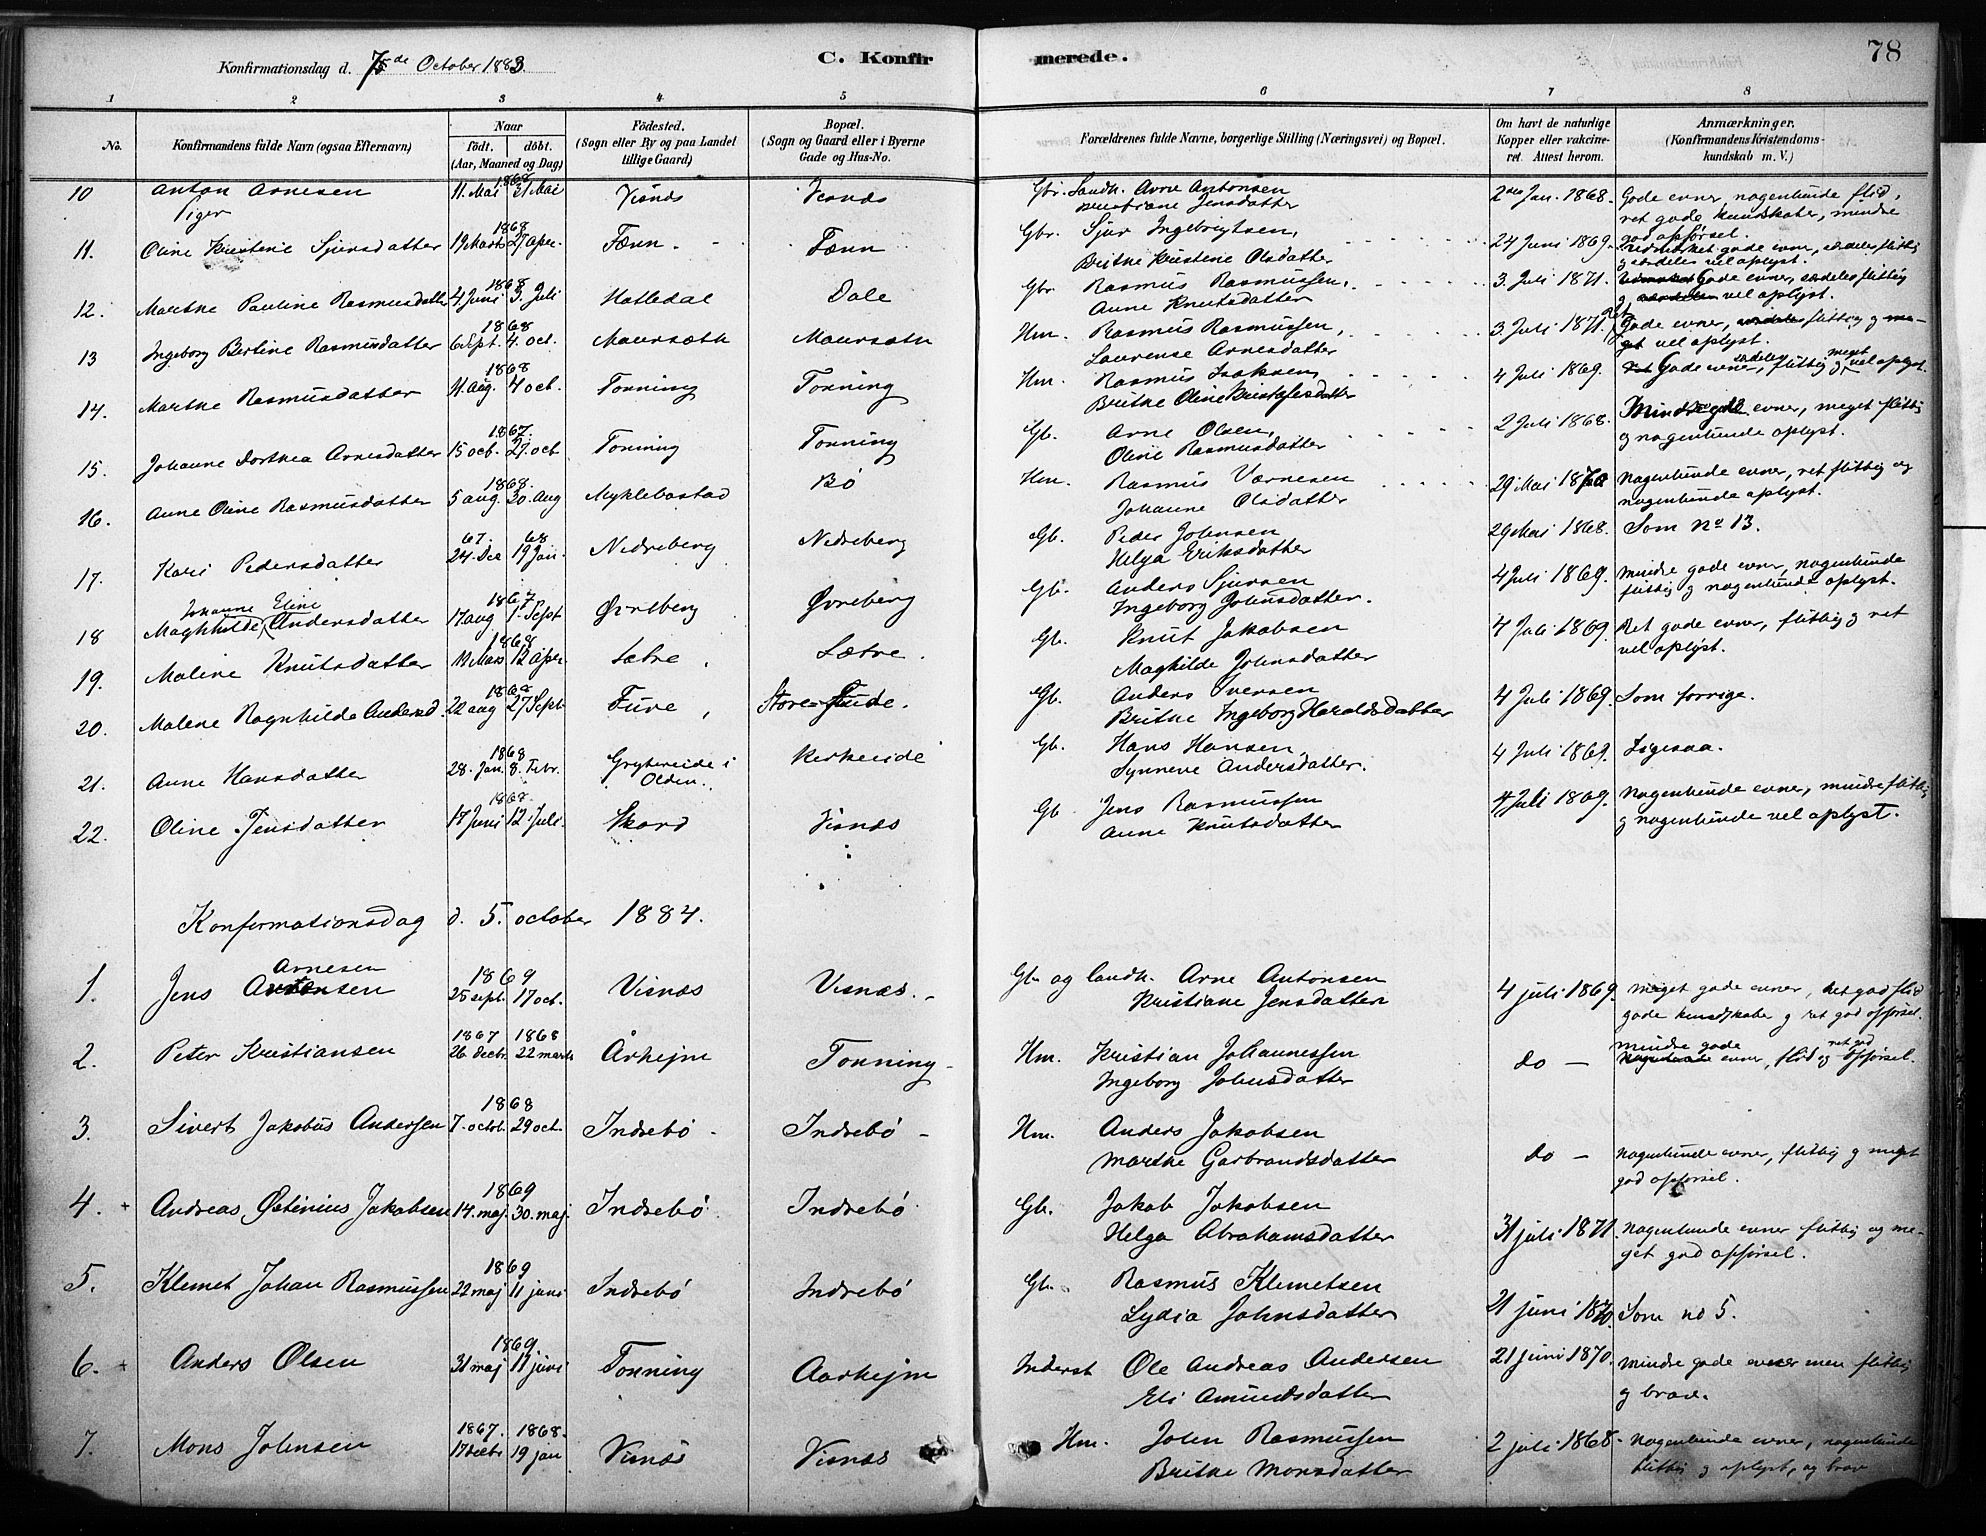 Konfirmationsdag d. 7de October 1883.
C. Konfirmerede.
78
1 2 3 4 5 6 7 8
No.
Konfirmandens fulde Navn (ogsaa Efternavn)
Naar
født. døbt.
(Aar, Maaned og Dag)
Fødested.
(Sogn eller By og paa Landet
tillige Gaard)
Bopæl.
(Sogn og Gaard eller i Byerne
Gade og Hus-No.
Forældrenes fulde Navne, borgerlige Stilling (Næringsvei) og Bopæl.
Om havt de naturlige
Kopper eller vakcine-
ret. Attest herom.
Anmærkninger.
(Konfirmandens Kristendoms-
kundskab m. V.)
1868
10 Anton Arnesen 11. Mai 31 Mai Visnæs Visnæs Gbr. Landh. Arne Antonsen 2den Jan. 1868. Gode evner, nogenlunde flid,
Kristiane Jensdatter ret gode kundskaber, mindre
god opførsel.
Piger
1868
11. Oline Kristine Sjursdatter 19 Marts 27 Apr. Fænn Fænn Gbr. Sjur Ingebrigtsen, 24 Juni 1869. gode evner, særdeles flittig
Brithe Kristine Olsdatter g særdeles vel oplyst.
1868
12. Marthe Pauline Rasmusdatter 4 Juni 3. Juli Hatledal Dale Gbr Rasmus Rasmussen, 3. Juli 1871. Gode evner, særdeles flittig
Anne Knutsdatter g særdeles vel oplyst.
1868
13 Ingeborg Bertine Rasmusdatter 6 Sept. 4. oct. Maurseth Maurseth Hm. Rasmus Rasmussen, 3 Juli 1871. Ret Gode evner, flittig g me-
Laurense Arnesdatter get vel oplyst.
1868
14. Marthe Rasmusdatter 11. Aug. 4 oct. Tonning Tonning Hm. Rasmus Isaksen, 4 Juli 1869. Gode evner, særdeles flittig g meget vel oplyst.
Brithe Oline Kristofersdatter
1867.
15. Johanne Dorthea Arnesdatter 15 oct. 27. oct Tonning Tonning Gb. Arne Olsen, 2 Juli 1868. Mindre gode evner, meget flittig
Oline Rasmusdatter g nogenlunde oplyst.
1868.
16. Anne Oline Rasmusdatter 5 aug. 30. Aug Myklebostad Bø Hm. Rasmus Værnesen 29 Mai 1870 Nogenlunde evner, ret flittig og
Johanne Olsdatter nogenlunde oplyst.
67. 68
17. Kari Pedersdatter 24. Dec 19 Jan. Nedreberg Nedreberg Gb. Peder Johnsen 29 Mai 1868. Som No 13.
Helga Eriksdatter
1867
Johanne Eline
18 Maghhilde Andersdatter 17 aug 1. Sept Øvreberg Øvreberg Gb. Anders Sjursen 4 Juli 1869. Mindre gode evner, nogenlunde
Ingeborg Johnsdatter. flittig g nogenlunde oplyst.
1868
19. Maline Knutsdatter 11 Mars 12 Apr Lætre Lætre. Gb. Knut Jakobsen 4 Juli 1869. Ret gode evner, flittig g ret
Maghilde Johnsdatter vel oplyst.
1868
20. Malene Ragnhilde Andersd. 22 aug 27 Sept Fure Store Gb. Anders Iversen 4 Juli 1869. Som forrige.
Brithe Ingeborg Haraldsdatter
1868
21. Anne Hansdatter 28. Jan. 8. Febr. Grytereide i Kirkeeide Gb. Hans Hansen 4 Juli 1869. Ligesaa.
Olden. Synneve Andersdatter.
1868.
22. Oline Jensdatter 17 Juni 12 Juli. Skard Visnæs Gb Jens Rasmussen 4 Juli 1869. Nogenlunde evner, mindre flittig
Anne Knutsdatter g nogenlunde vel oplyst.
Konfirmationsdag d. 5. october 1884.
1869
Arnesen
1. Jens Antonsen 25 sept. 17 oct. Visnæs Visnæs. Gb. og landh. Arne Antonsen 4 juli 1869. Meget gode evner, ret god flid
Kristiane Jensdatter gode kundskaber g ret god opførsel.
1867 1868
2. Peter Kristiansen 26 decbr. 22 marts Århejm Tonning Hm. Kristian Johannessen do — mindre gode evner, flid og ret god opførsel.
Ingeborg Johnsdatter
1868
3. Sivert Jakobus Andersen 7. octob. 29 oct. Indrebø Indrebø Hm. Anders Jakobsen do — Nogenlunde evner, flittig g meget
Marthe Garbrandsdatter god opførsel.
1869
4. + Andreas Østinius Jakobsen 14. maj. 30. maj. Indrebø Indrebø Gb. Jakob Jakobsen 31 juli 1871. Nogenlunde evner flittig og me-
Helga Abrahamsdatter get god opførsel.
1869
5. Klemet Johan Rasmussen 22 maj 11 juni Indrebø Indrebø Gb. Rasmus Klemetsen 21 juni 1870. Som no 5.
Lydia Johnsdatter
1869.
6. + Anders Olsen 31 maj 11 juni Tonning Aarhejm Inderst Ole Andreas Andersen 21 juni 1870. Mindre gode evner men flittig
Eli Amundsdatter g brav.
1867. 1868.
7. Mons Johnsen 17 decbr 19 jan Visnæs Visnæs Hm. John Rasmussen 2 juli 1868. Nogenlunde evner, nogenlunde
Brithe Monsdatter flittig g oplyst, og brav